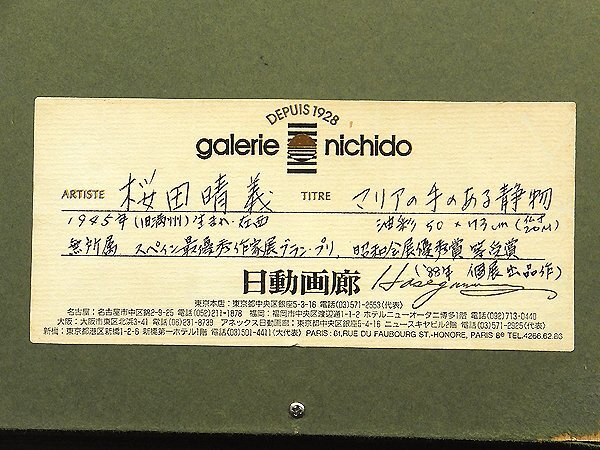 DEPUIS 1928
galerie nichido
ARTISTE 桜田晴義 TITRE マリアの手のある静物
1945年(旧満州)生まれ・在西 油彩 50×73cm (仏寸20M)
無所属 スペイン最優秀作家展グラン・プリ、昭和会展優秀賞 等受賞
日動画廊 Hasegawa ('88年 個展出品作)
東京本店:東京都中央区銀座5-3-16 電話(03)571-2553(代表)
名古屋:名古屋市中区錦2-9-25 電話(052)211-1878 福岡:福岡市中央区渡辺通1-1-2 ホテルニューオータニ博多1階 電話(092)713-0440
大阪:大阪市東区北浜3-41 電話(06)231-8739 アネックス日動画廊:東京都中央区銀座5-4-16 ニュースキヤビル2階 電話(03)571-2925(代表)
新橋:東京都港区新橋1-2-6 新橋第一ホテル1階 電話(03)501-4411(大代表) PARIS:61,RUE DU FAUBOURG ST.-HONORE, PARIS 8e TEL.4266.62.86